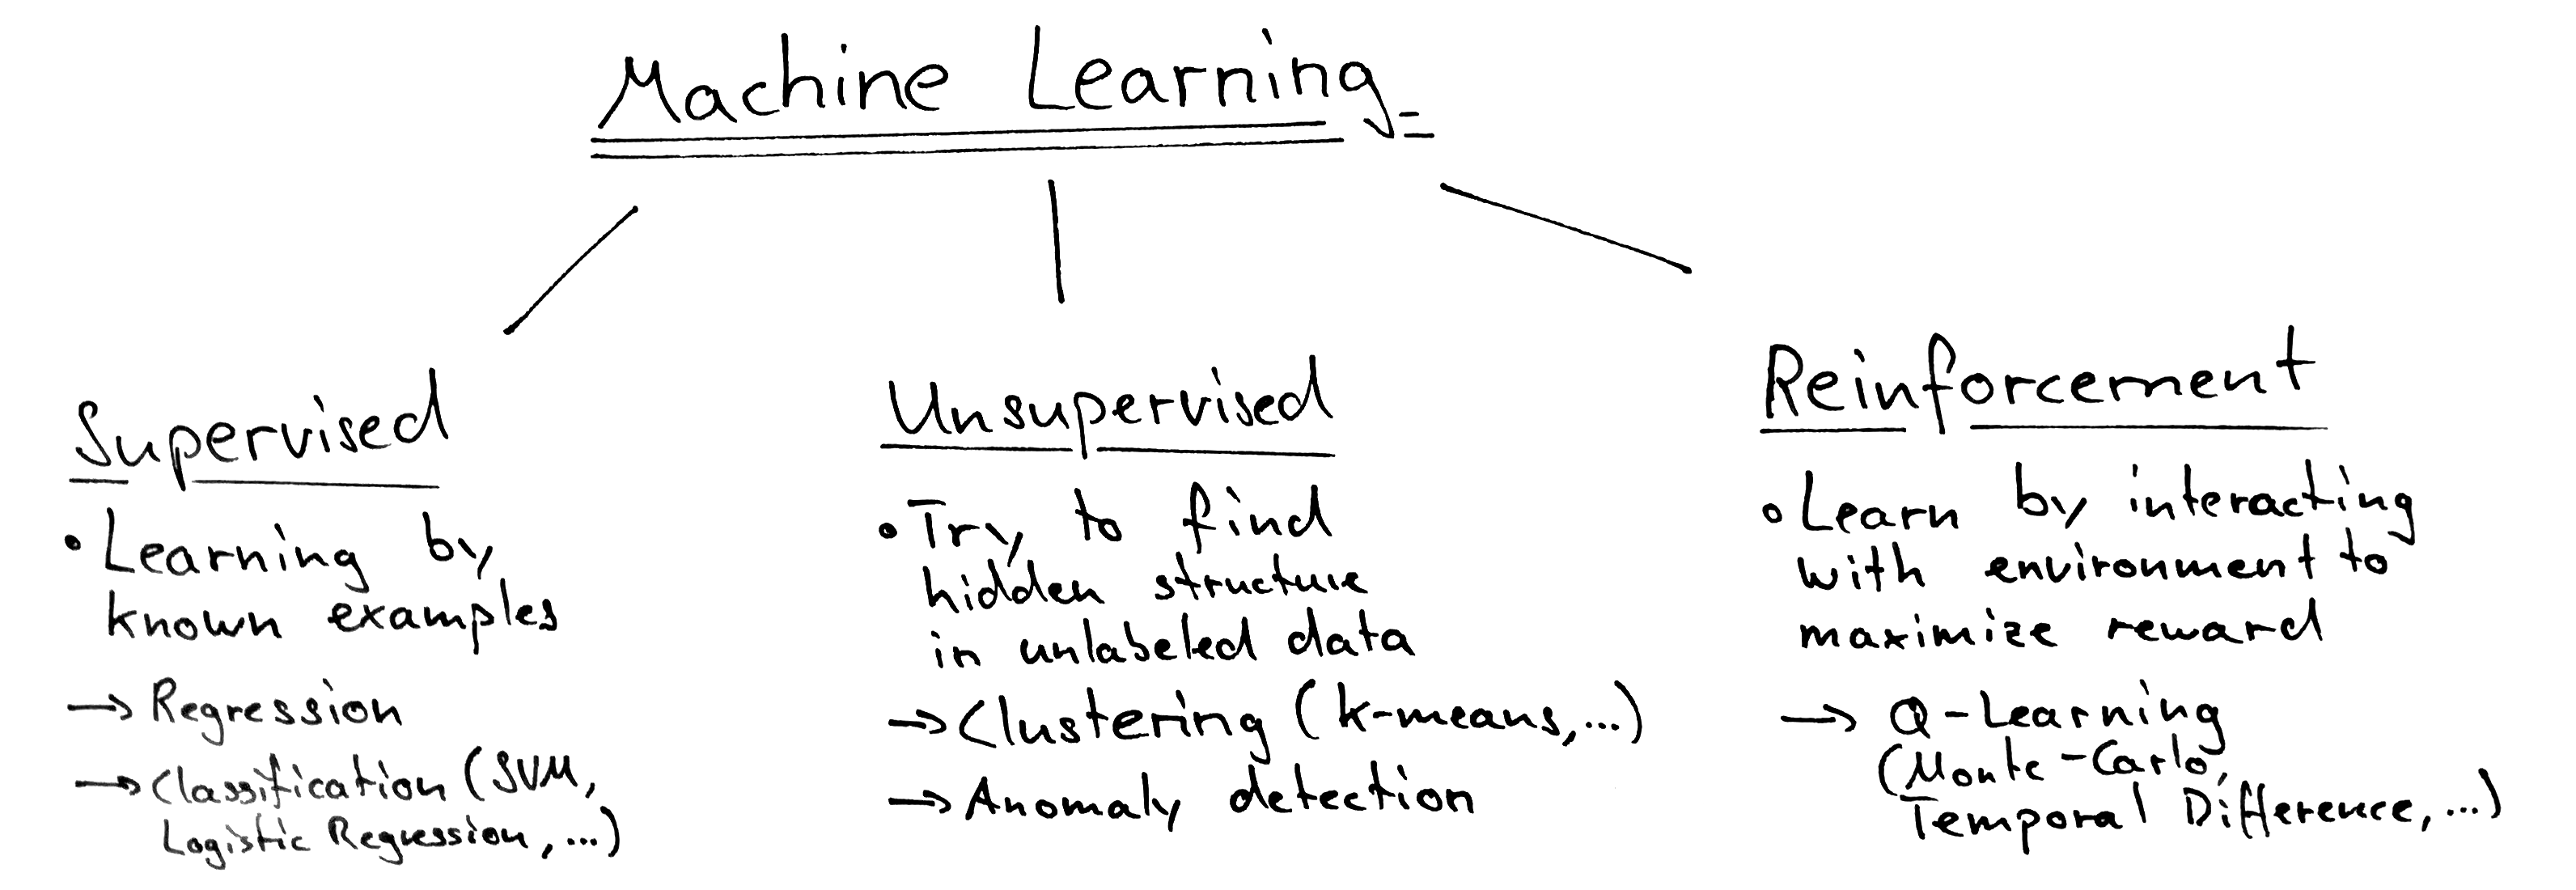 Machine Learning
Supervised
• Learning by
known examples
→ Regression
→ Classification (SVM,
Logistic Regression, ...)
Unsupervised
• Try to find
hidden structure
in unlabeled data
→ Clustering (k-means, ...)
→ Anomaly detection
Reinforcement
• Learn by interacting
with environment to
maximize reward
→ Q-Learning
(Monte-Carlo,
Temporal Difference, ...)